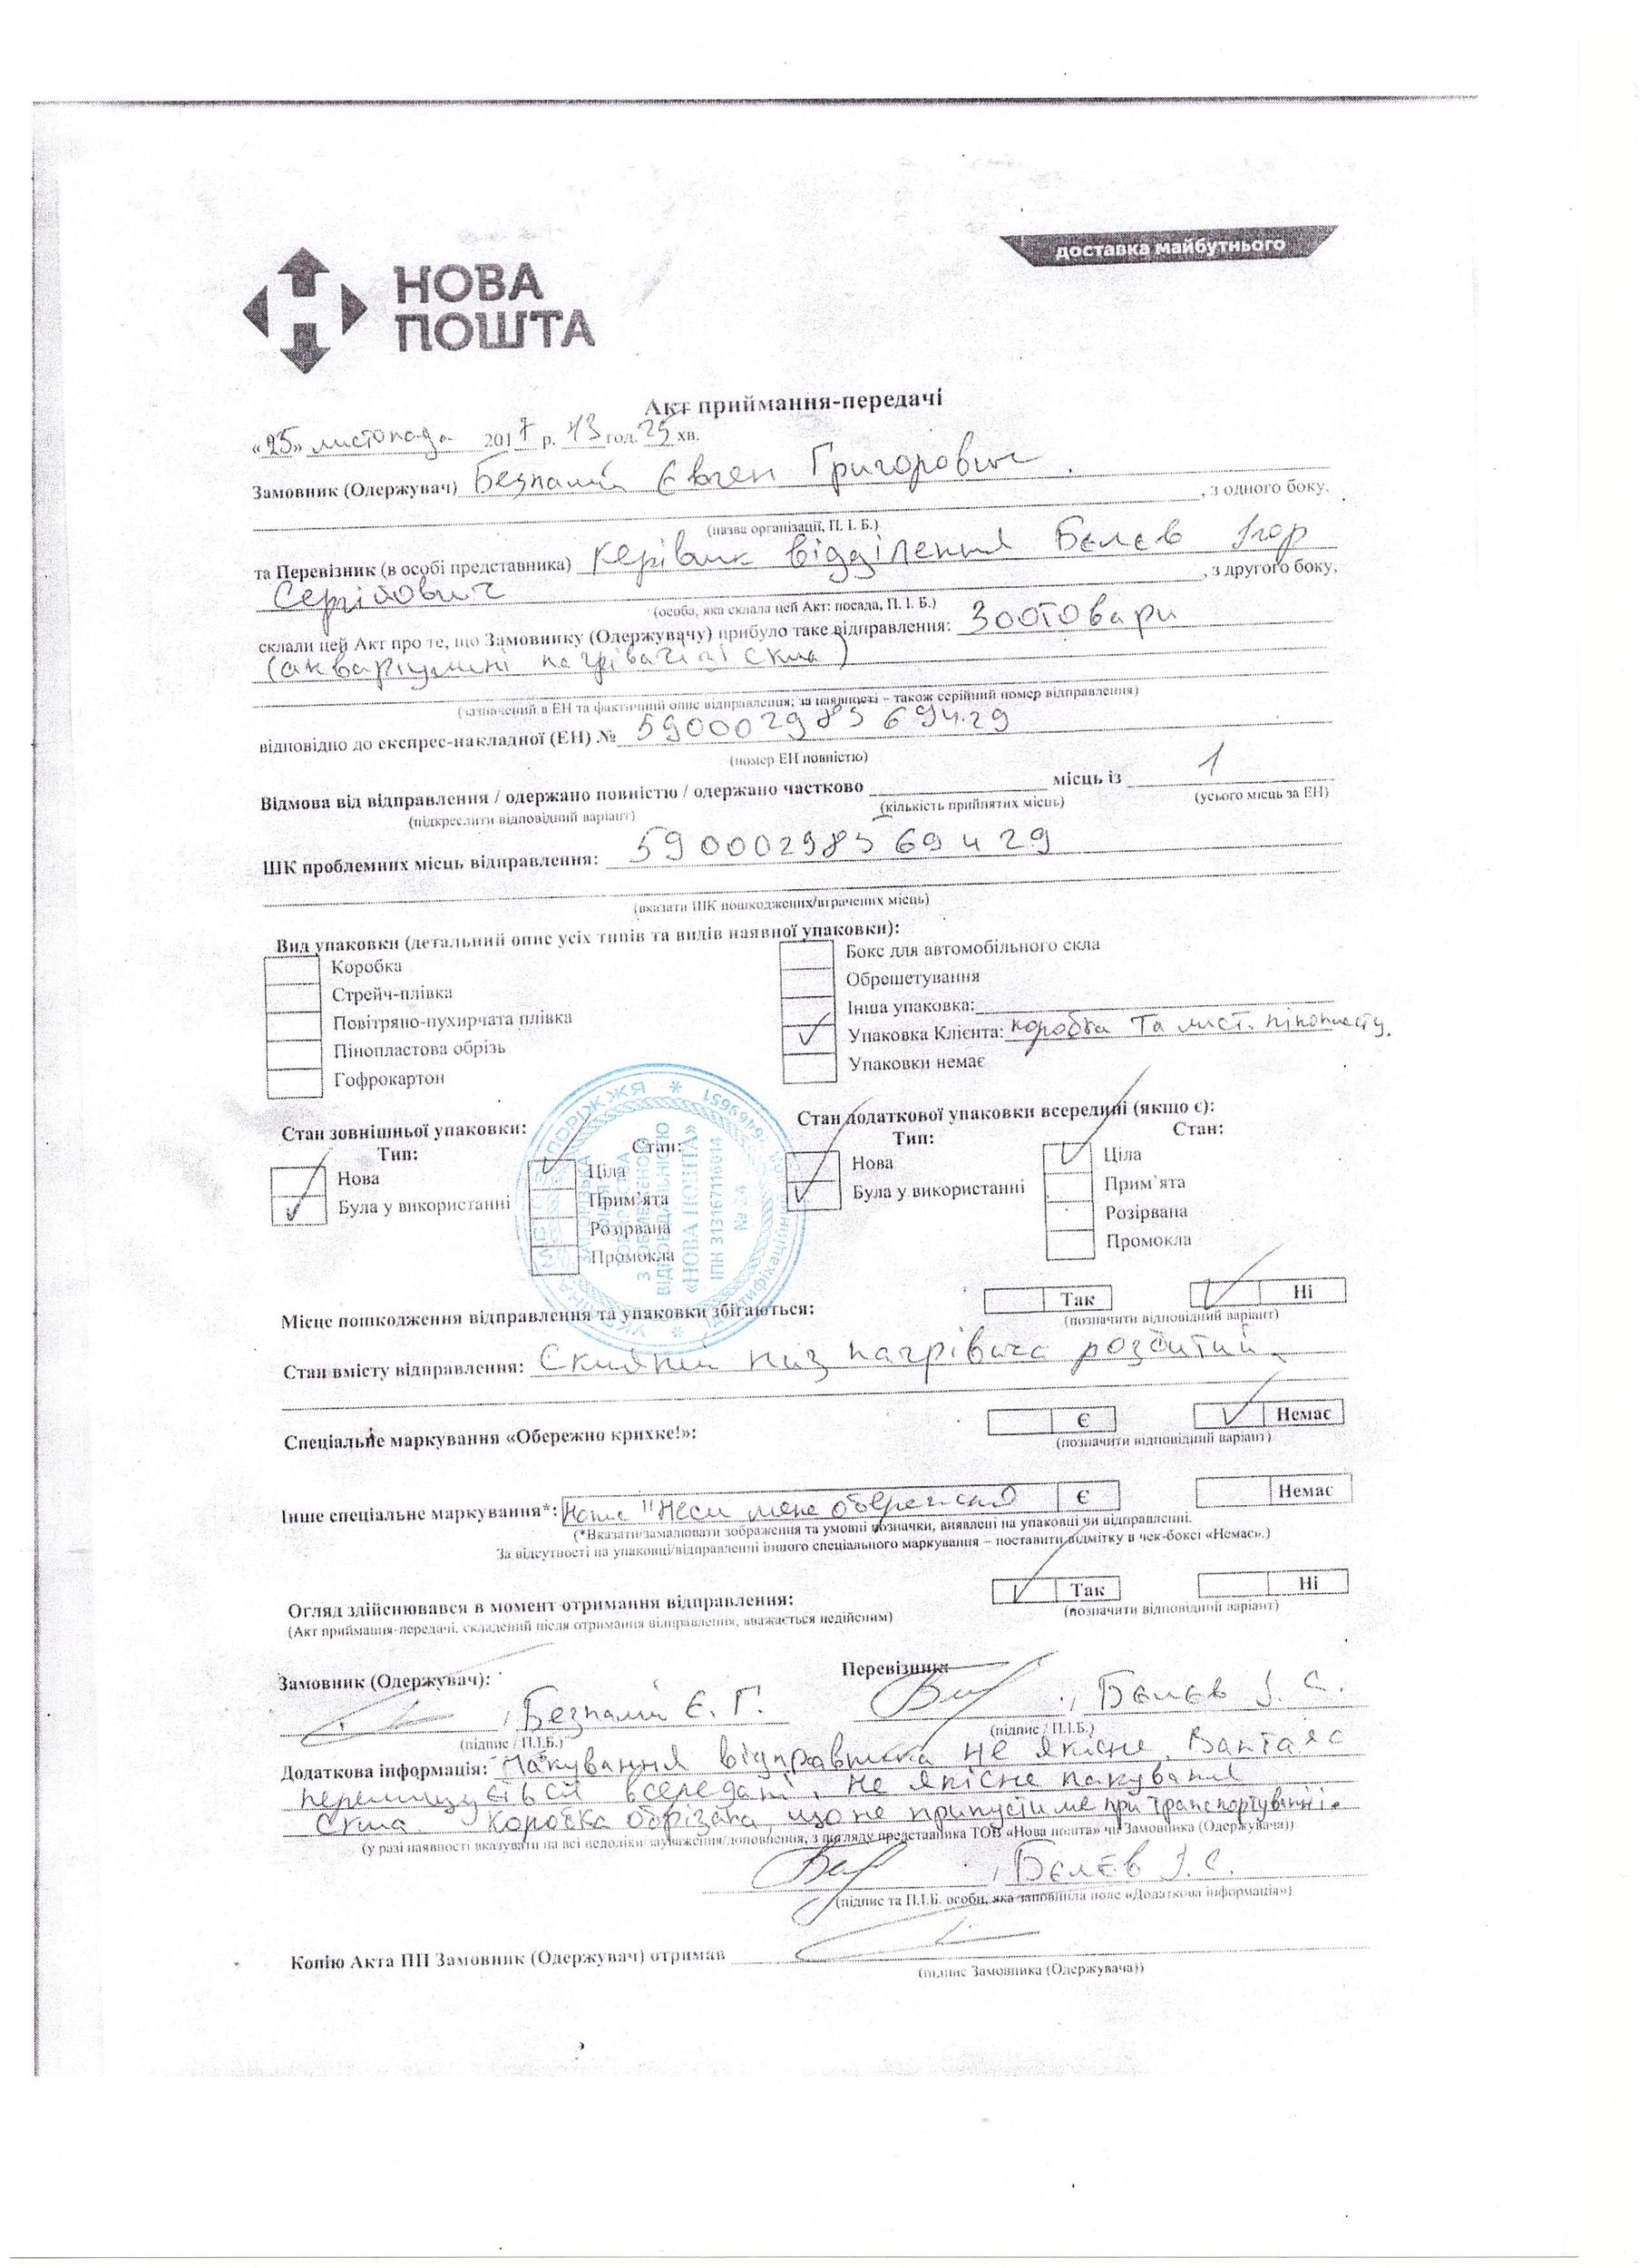 доставка майбутнього
НОВА
ПОШТА
Акт приймання-передачі
«25» листопада 2017 р. 13 год. 25 хв.
Замовник (Одержувач) Безпалий Євген Григорович
, з одного боку,
(назва організації, П. І. Б.)
та Перевізник (в особі представника) керівник відділення Бєлєв Ігор
Сергійович , з другого боку,
(особа, яка склала цей Акт: посада, П. І. Б.)
склали цей Акт про те, що Замовнику (Одержувачу) прибуло таке відправлення: Зоотовари
(акваріумні нагрівачі зі скла)
(зазначений в ЕН та фактичний опис відправлення; за наявності – також серійний номер відправлення)
відповідно до експрес-накладної (ЕН) № 59000298369429
(номер ЕН повністю)
Відмова від відправлення / одержано повністю / одержано частково місць із 1
(підкреслити відповідний варіант) (кількість прийнятих місць) (усього місць за ЕН)
ШК проблемних місць відправлення: 59000298369429
(вказати ШК пошкоджених/втрачених місць)
Вид упаковки (детальний опис усіх типів та видів наявної упаковки):
Коробка
Стрейч-плівка
Повітряно-пухирчата плівка
Пінопластова обрізь
Гофрокартон
Бокс для автомобільного скла
Обрешетування
Інша упаковка:
Упаковка Клієнта: коробка та лист. пінопласту.
Упаковки немає
Стан зовнішньої упаковки:
Тип: Стан:
Нова
Була у використанні
Ціла
Прим'ята
Розірвана
Промокла
Стан додаткової упаковки всередині (якщо є):
Тип: Стан:
Нова
Була у використанні
Ціла
Прим'ята
Розірвана
Промокла
ВІДПОВІДАЛЬНІСТЮ
«НОВА ПОШТА»
ІПН 313167116014
Місце пошкодження відправлення та упаковки збігаються: Так Ні
(позначити відповідний варіант)
Стан вмісту відправлення: Скляний низ нагрівача розбитий.
Спеціальне маркування «Обережно крихке!»: Є Немає
(позначити відповідний варіант)
Інше спеціальне маркування*: "Неси мене обережно Є Немає
(*Вказати/замалювати зображення та умовні позначки, виявлені на упаковці чи відправленні.
За відсутності на упаковці/відправленні іншого спеціального маркування – поставити відмітку в чек-боксі «Немає».)
Огляд здійснювався в момент отримання відправлення: Так Ні
(Акт приймання-передачі, складений після отримання відправлення, вважається недійсним) (позначити відповідний варіант)
Замовник (Одержувач): Перевізник
, Безпалий Є. Г. , Бєлєв І. С.
(підпис / П.І.Б.) (підпис / П.І.Б.)
Додаткова інформація: Пакування відправника не якісне. Вантаж
переміщується всередині. Не якісне пакування
скла. Коробка обрізана, що не припустиме при транспортуванні.
(у разі наявності вказувати на всі недоліки/зауваження/доповнення, з погляду представника ТОВ «Нова пошта» чи Замовника (Одержувача))
, Бєлєв І. С.
(підпис та П.І.Б. особи, яка заповнила поле «Додаткова інформація»)
Копію Акта ПП Замовник (Одержувач) отримав
(підпис Замовника (Одержувача))